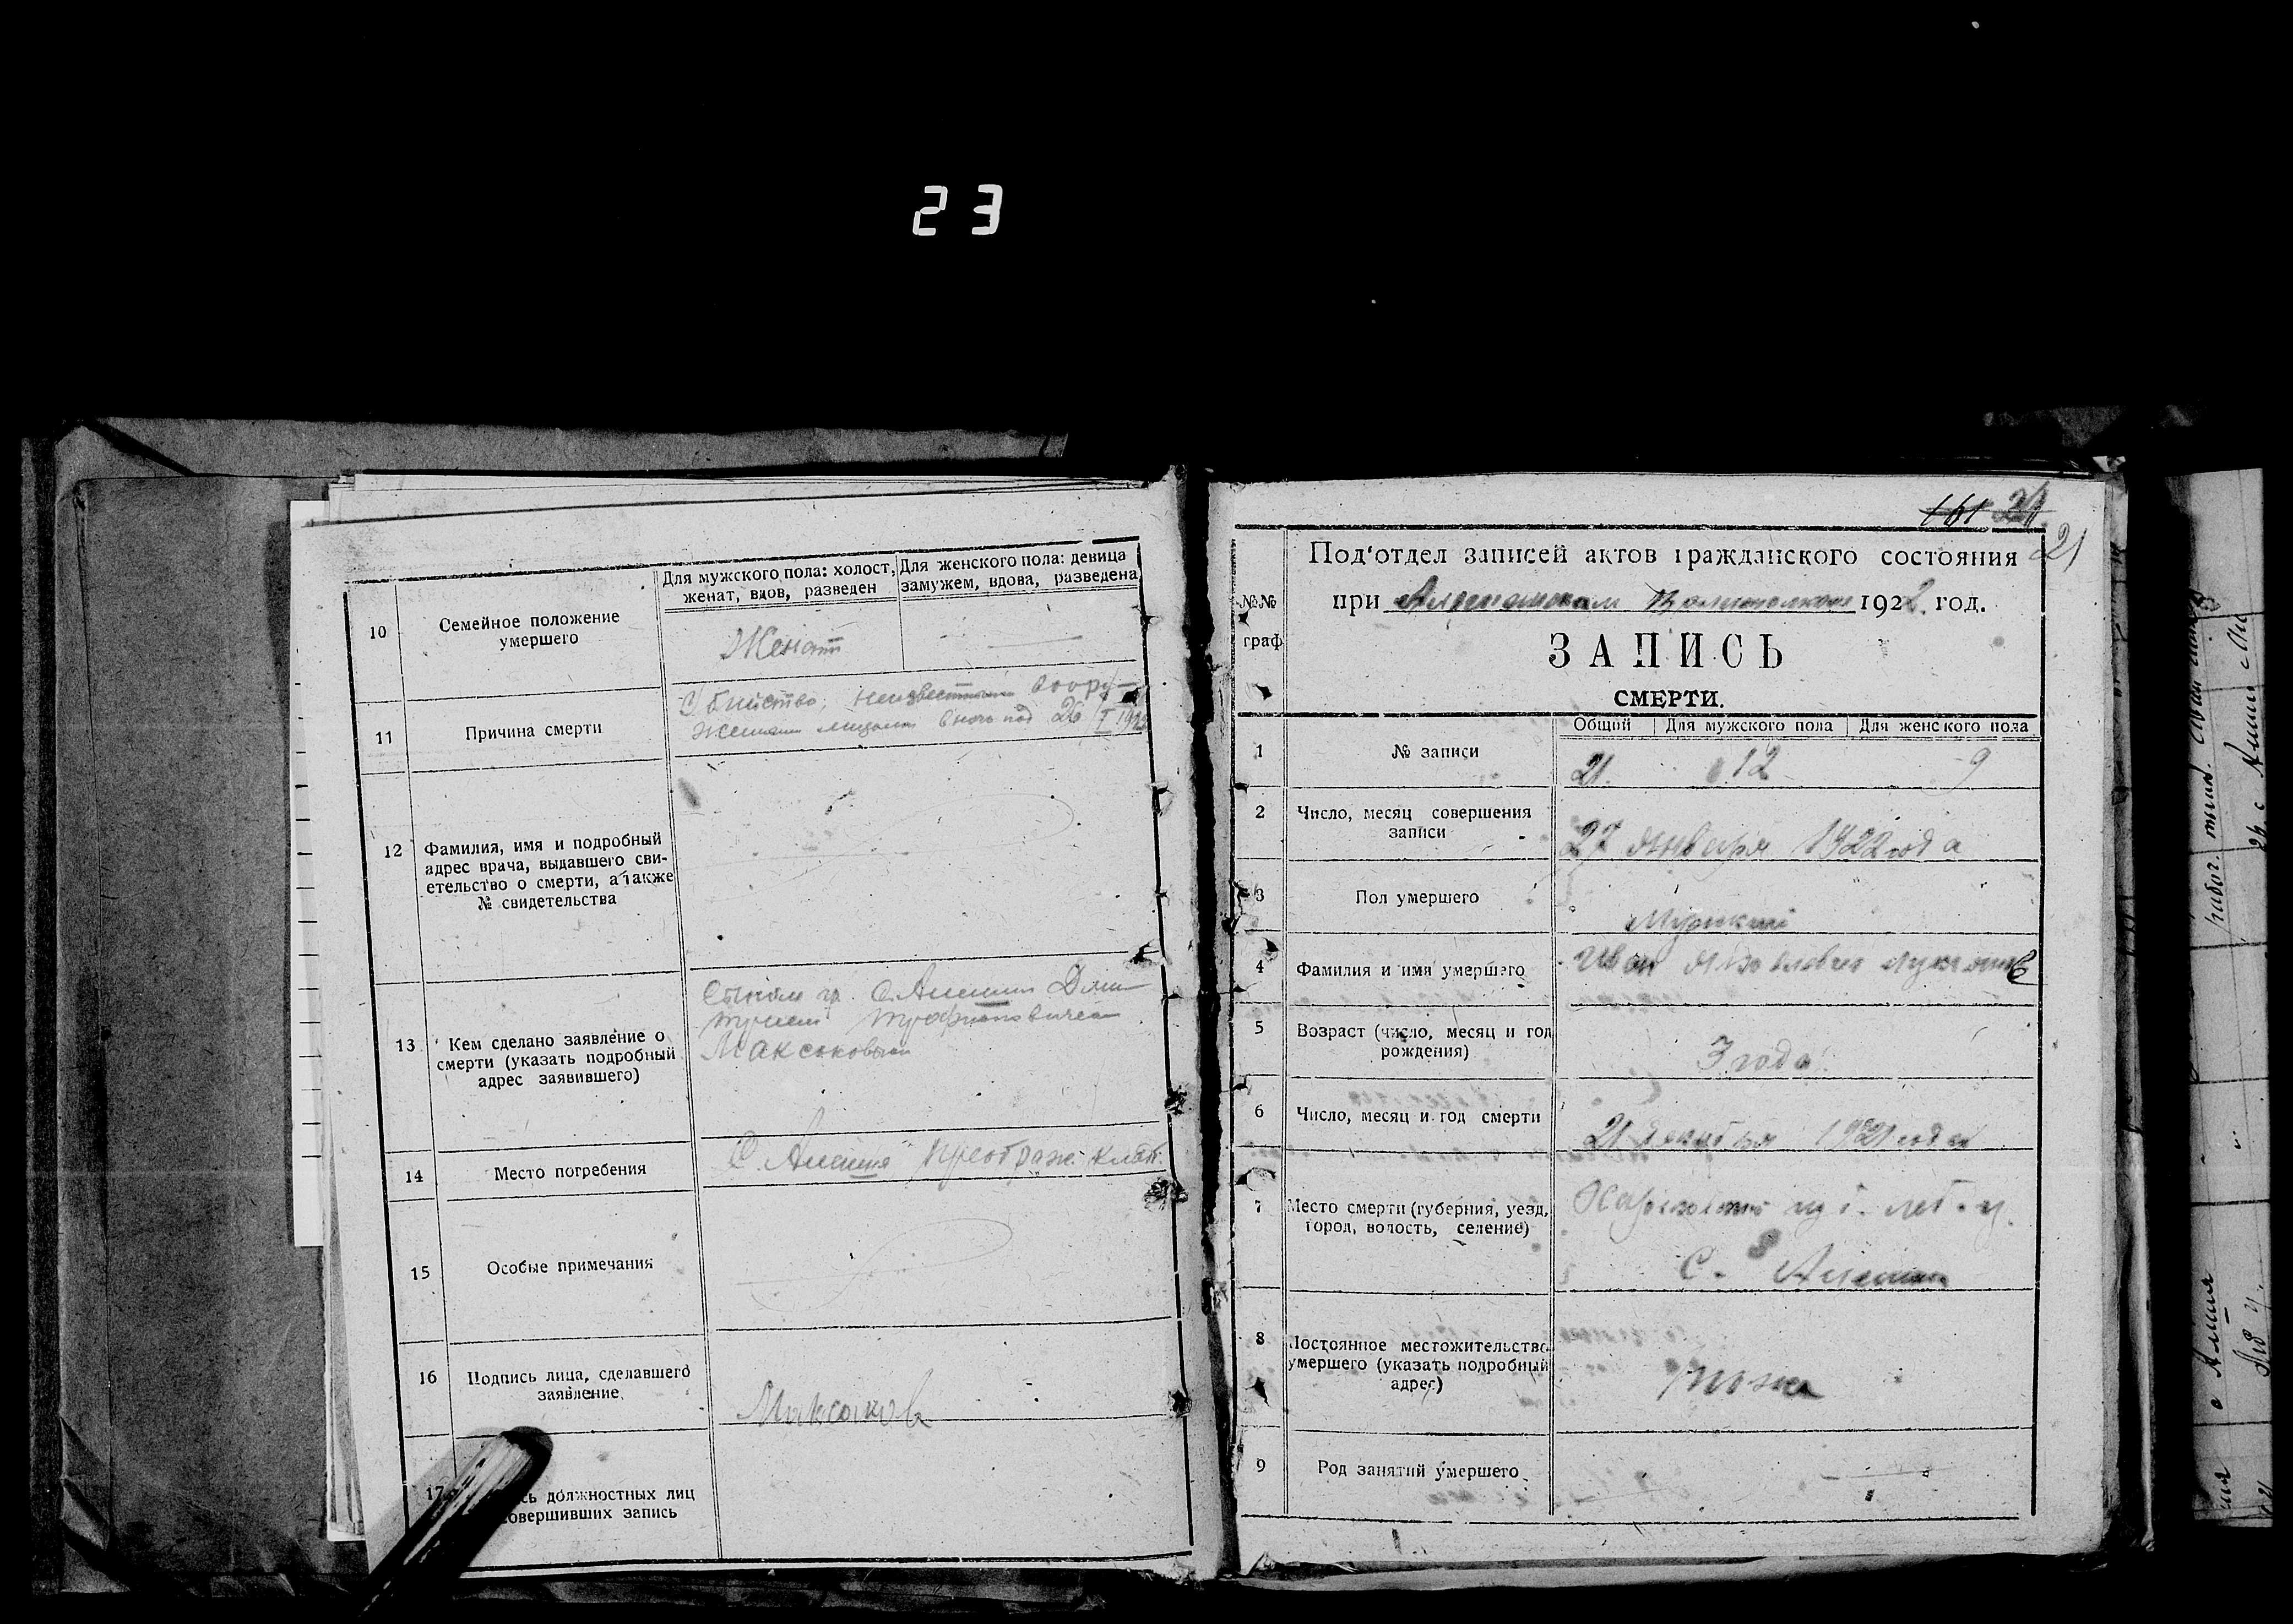 23
Для мужского пола: холост, женат, вдов, разведен
Для женского пола: девица замужем, вдова, разведена
10
Семейное положение
умершего
Женат
11
Причина смерти
Убийство, неизвестными воору-
женными лицами в ночь под 26/I 1922
12
Фамилия, имя и подробный
адрес врача, выдавшего сви-
етельство о смерти, а также
№ свидетельства
13
Кем сделано заявление о
смерти (указать подробный
адрес заявившего)
Сыном гр. с. Алешни Дми-
трием Трофимовичем
Максаковым
14
Место погребения
С. Алешня Преображ. клад.
15
Особые примечания
16
Подпись лица, сделавшего
заявление
Максаков
17
сь должностных лиц
совершивших запись
161 21
21
Под'отдел записей актов гражданского состояния
№№
граф
при 1922 год.
ЗАПИСЬ
СМЕРТИ.
Общий Для мужского пола Для женского пола
1
№ записи
21. 12 9
2
Число, месяц совершения
записи
27 января 1922 года
3
Пол умершего
Мужской
4
Фамилия и имя умершего
Иван
5
Возраст (число, месяц и год
рождения)
3 года
6
Число, месяц и год смерти
21 декабря 1921 года
7
Место смерти (губерния, уезд,
город, волость, селение)
Харьковской губ. Леб. у.
С. Алешня
8
Постоянное местожительство
умершего (указать подробный
адрес)
тоже
9
Род занятий умершего